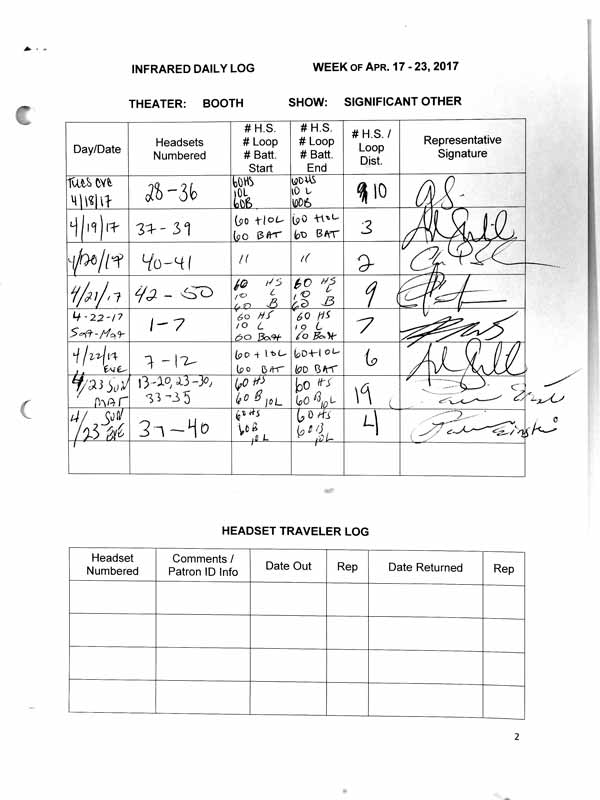 INFRARED DAILY LOG WEEK OF APR. 17 - 23, 2017
THEATER: BOOTH SHOW: SIGNIFICANT OTHER
Day/Date Headsets Numbered # H.S. # Loop # Batt. Start # H.S. # Loop # Batt. End # H.S. / Loop Dist. Representative Signature
Tues eve 4/18/17 28-36 60HS 10L 60B 60HS 10 L 60B 10 g.s.
4/19/17 37-39 60 +10L 60 BAT 60 +10L 60 BAT 3
4/20/17 40-41 " " 2
4/21/17 42-50 60 HS 10 L 60 B 60 HS 10 L 60 B 9
4-22-17 Sat-Mat 1-7 60 HS 10 L 60 Batt 60 HS 10 L 60 Batt 7
4/22/17 EVE 7-12 60+10L 60 BAT 60+10L 60 BAT 6
4/23 SUN MAT 13-20, 23-30, 33-35 60 HS 60 B 10L 60 HS 60 B 10L 19
4/23 SUN EVE 37-40 60HS 60B 10L 60HS 60B 10L 4
HEADSET TRAVELER LOG
Headset Numbered Comments / Patron ID Info Date Out Rep Date Returned Rep
2